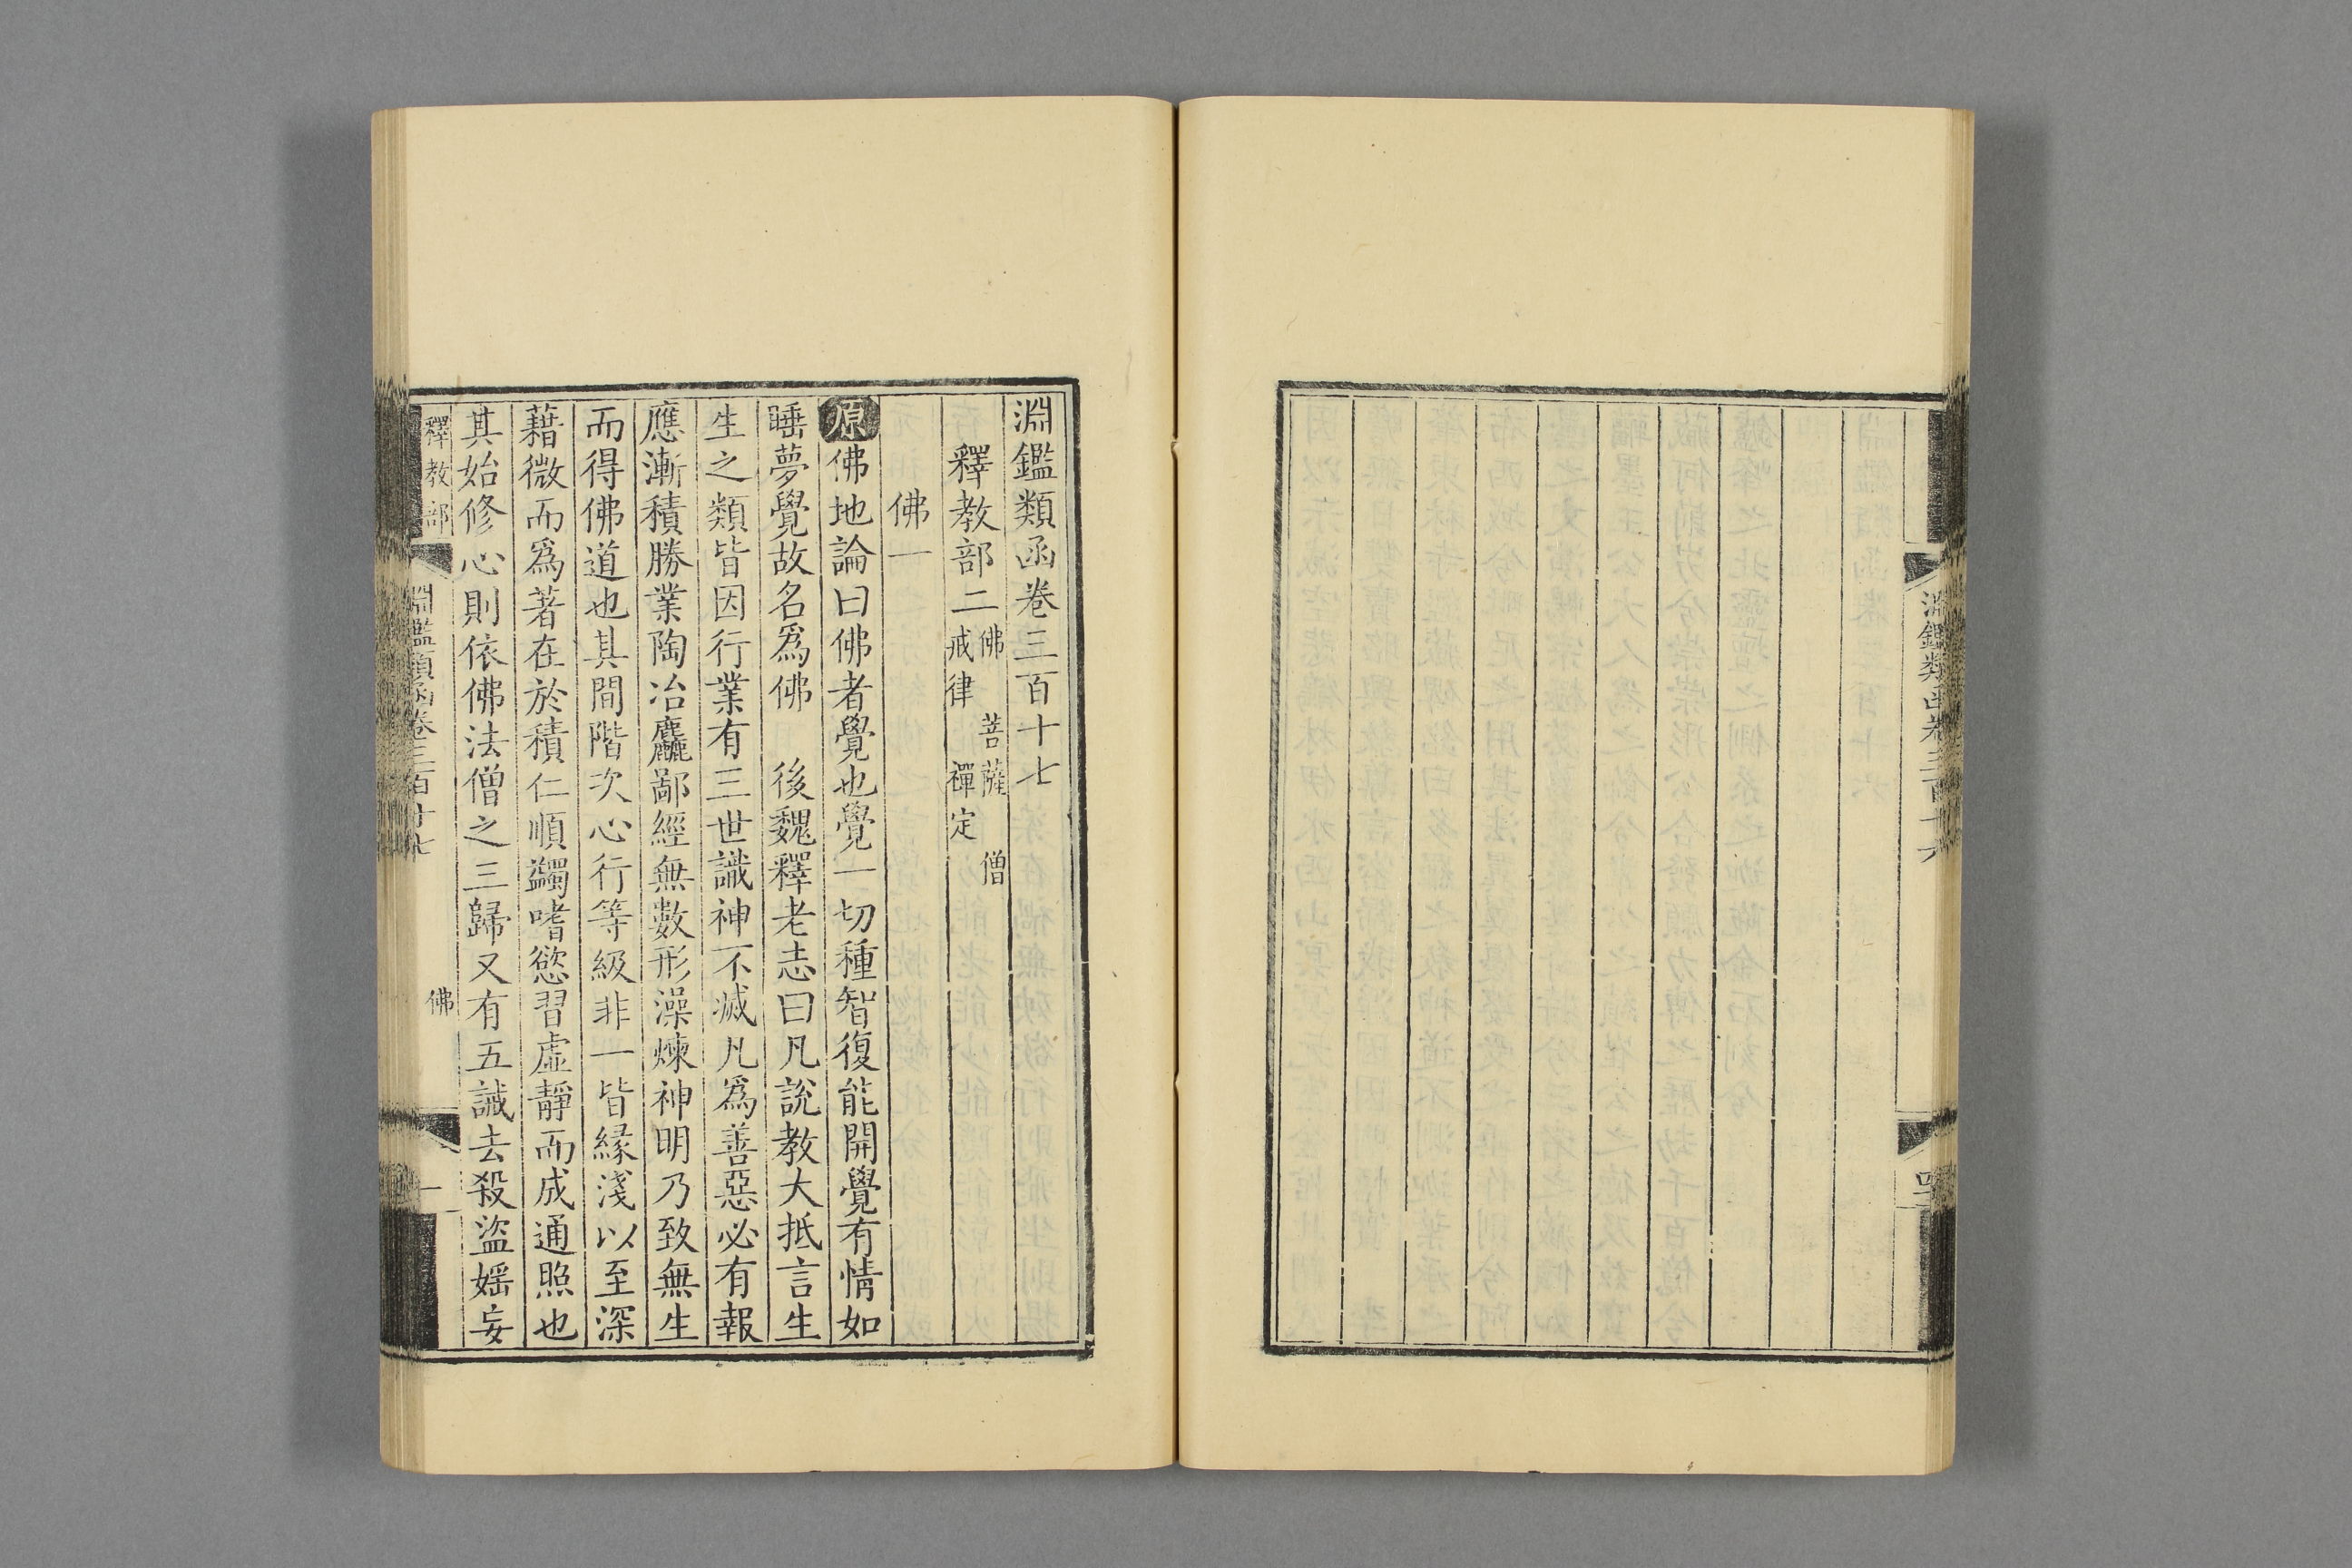 淵鑑類函卷三百十六
淵鑑類函卷三百十七
釋教部二 佛 菩薩 僧 戒律 禪定
佛一
原佛地論曰佛者覺也覺一切種智復能開覺有情如
睡夢覺故名爲佛 後魏釋老志曰凡說教大抵言生
生之類皆因行業有三世識神不滅凡爲善惡必有報
應漸積勝業陶冶麤鄙經無數形澡煉神明乃致無生
而得佛道也其間階次心行等級非一皆緣淺以至深
藉微而爲著在於積仁順蠲嗜慾習虛靜而成通照也
其始修心則依佛法僧之三歸又有五誡去殺盜婬妄
釋教部 淵鑑類函卷三百十七 佛 一